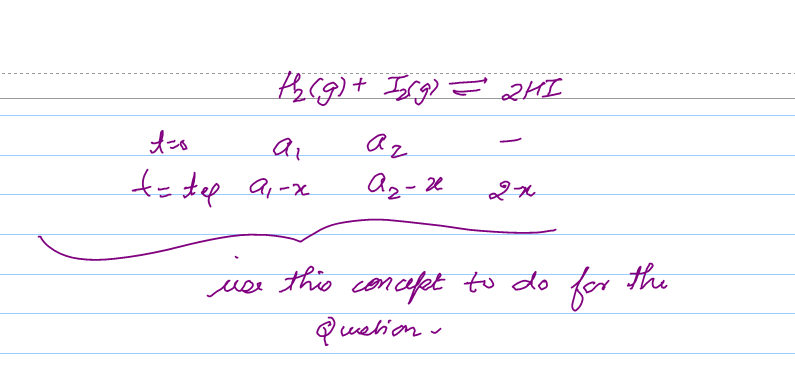 H₂(g) + I₂(g) ⇌ 2HI
t=0 a₁ a₂ –
t = teq a₁-x a₂-x 2x
use this concept to do for the
Question.